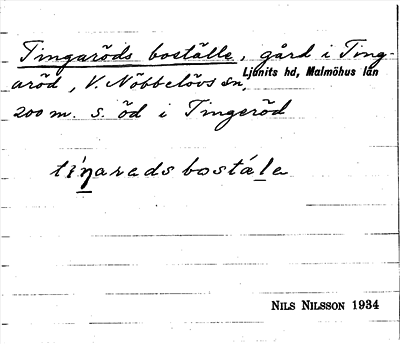 Tingaröds boställe, gård i Ting-
aröd, V. Nöbbelövs sn,
Ljunits hd, Malmöhus län
200 m. s. öd i Tingeröd
tíŋaradsbostála
NILS NILSSON 1934